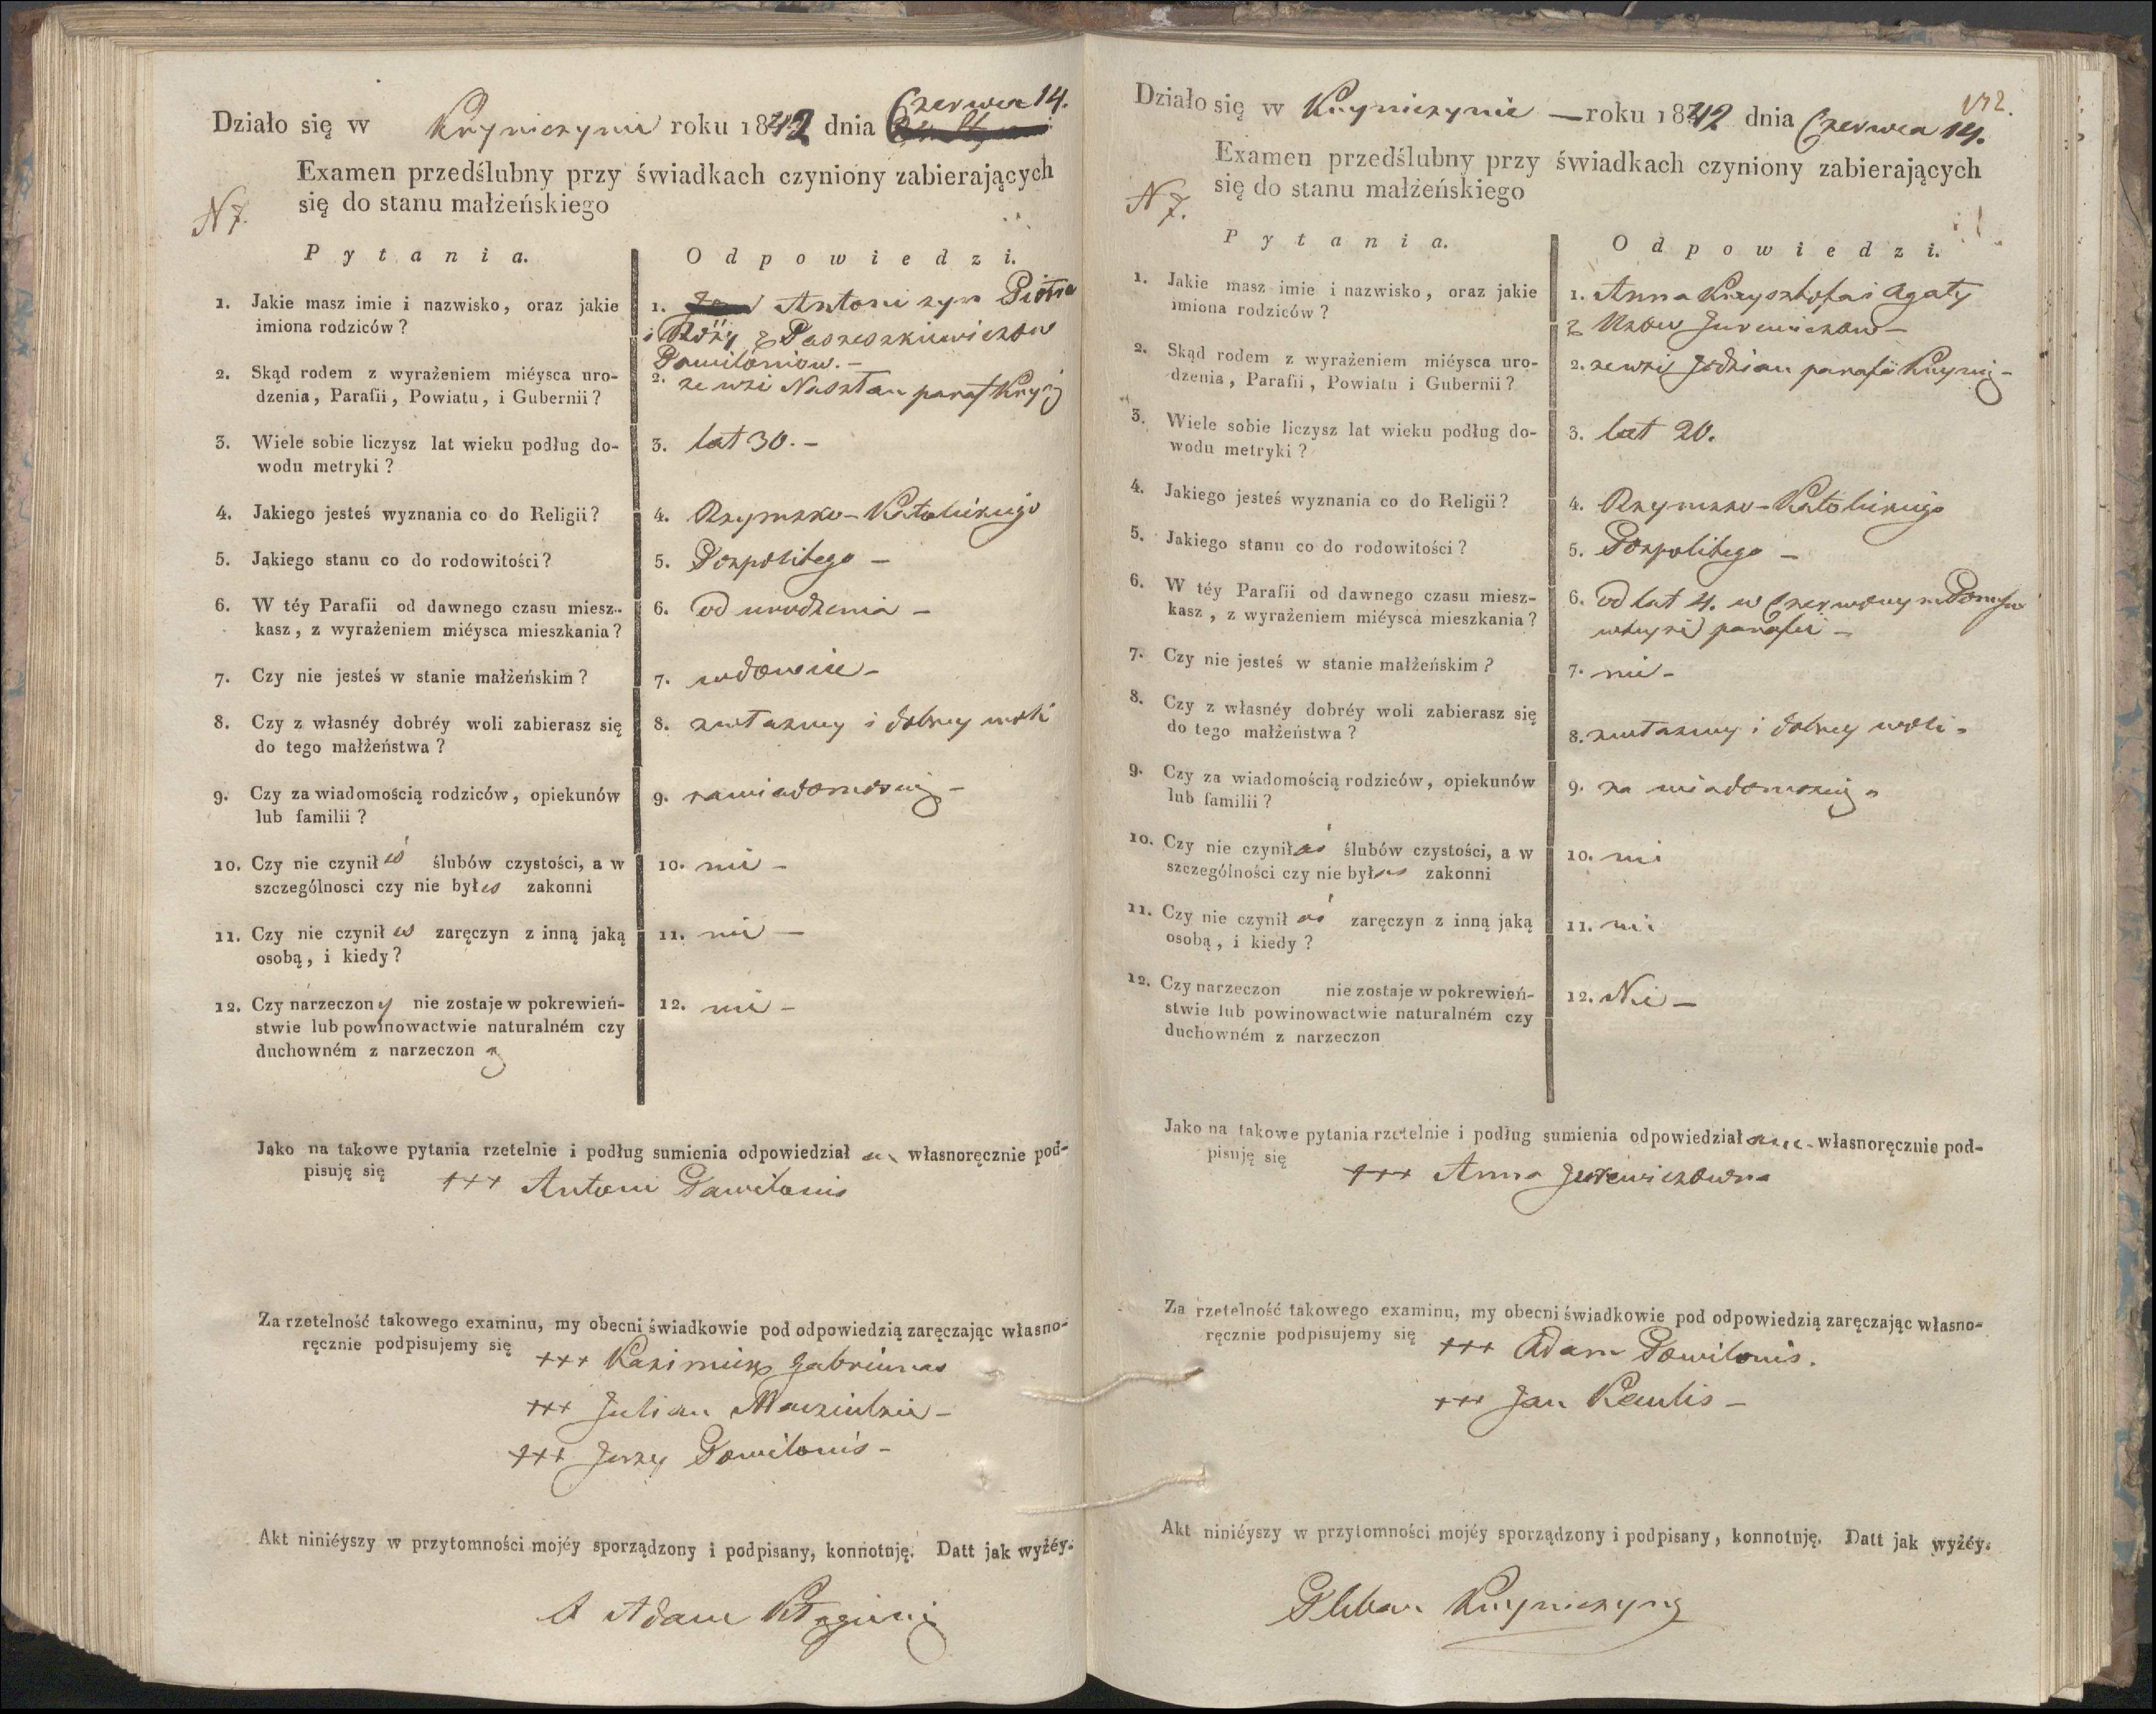 Działo się w Kryniczynie roku 1842 dnia Czerwca 14.
Examen przedślubny przy świadkach czyniony zabierających
się do stanu małżeńskiego
N 7.
Pytania. Odpowiedzi.
1. Jakie masz imie i nazwisko, oraz jakie
imiona rodziców?
1. Antoni syn Piotra
i Róży z Paszeszkiewiczow
Pawiloniow. -
2. Skąd rodem z wyrażeniem miéysca uro-
dzenia, Parafii, Powiatu, i Gubernii?
2. ze wsi Nasztan paraf
3. Wiele sobie liczysz lat wieku podług do-
wodu metryki?
3. lat 30. -
4. Jakiego jesteś wyznania co do Religii?
4. Rzymsko-Katolickiego
5. Jakiego stanu co do rodowitości?
5. Pospolitego -
6. W téy Parafii od dawnego czasu miesz-
kasz, z wyrażeniem miéysca mieszkania?
6. od urodzenia -
7. Czy nie jesteś w stanie małżeńskim?
7. wdowiec -
8. Czy z własnéy dobréy woli zabierasz się
do tego małżeństwa?
8. zwłasney i dobrey woli
9. Czy za wiadomością rodziców, opiekunów
lub familii?
9. zawiadomością -
10. Czy nie czynił eś ślubów czystości, a w
szczególnosci czy nie był es zakonni
10. nie -
11. Czy nie czynił es zaręczyn z inną jaką
osobą, i kiedy?
11. nie -
12. Czy narzeczon y nie zostaje w pokrewień-
stwie lub powinowactwie naturalném czy
duchowném z narzeczon ą
12. nie -
Jako na takowe pytania rzetelnie i podług sumienia odpowiedział em własnoręcznie pod-
pisuję się +++ Antoni Pawilonis
Za rzetelność takowego examinu, my obecni świadkowie pod odpowiedzią zaręczając własno-
ręcznie podpisujemy się +++ Kazimierz Gabriunas
+++ Julian
+++ Jerzy Pawilonis -
Akt niniéyszy w przytomności mojéy sporządzony i podpisany, konnotuję. Datt jak wyżéy.
X Adam
Działo się w Kryniczynie - roku 1842 dnia Czerwca 14.
Examen przedślubny przy świadkach czyniony zabierających
się do stanu małżeńskiego
N 7.
Pytania. Odpowiedzi.
1. Jakie masz imie i nazwisko, oraz jakie
imiona rodziców?
1. Anna Krysztofa i Agaty
z Jurewiczow -
2. Skąd rodem z wyrażeniem miéysca uro-
dzenia, Parafii, Powiatu i Gubernii?
2. ze wsi Jodzian parafii
3. Wiele sobie liczysz lat wieku podług do-
wodu metryki?
3. lat 20.
4. Jakiego jesteś wyznania co do Religii?
4. Rzymsko-Katolickiego
5. Jakiego stanu co do rodowitości?
5. Pospolitego -
6. W téy Parafii od dawnego czasu miesz-
kasz, z wyrażeniem miéysca mieszkania?
6. od lat 4. w Czerwonym
wteyże parafii -
7. Czy nie jesteś w stanie małżeńskim?
7. nie -
8. Czy z własnéy dobréy woli zabierasz się
do tego małżeństwa?
8. zwłasney i dobrey woli -
9. Czy za wiadomością rodziców, opiekunów
lub familii?
9. za wiadomością -
10. Czy nie czynił aś ślubów czystości, a w
szczególności czy nie był as zakonni
10. nie
11. Czy nie czynił aś zaręczyn z inną jaką
osobą, i kiedy?
11. nie
12. Czy narzeczon nie zostaje w pokrewień-
stwie lub powinowactwie naturalném czy
duchowném z narzeczon
12. Nie -
Jako na takowe pytania rzetelnie i podług sumienia odpowiedział am - własnoręcznie pod-
pisuję się +++ Anna Jurewiczowna
Za rzetelność takowego examinu, my obecni świadkowie pod odpowiedzią zaręczając własno-
ręcznie podpisujemy się +++ Adam Pawilonis.
+++ Jan Kaulis -
Akt niniéyszy w przytomności mojéy sporządzony i podpisany, konnotuję. Datt jak wyżéy.
Pleban